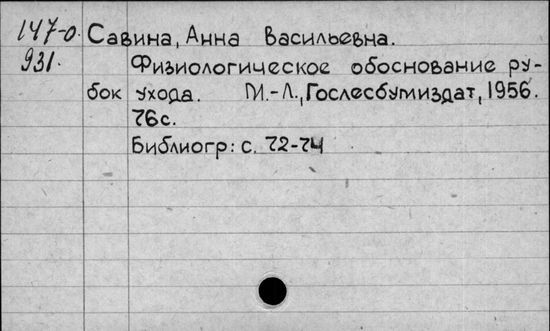 147-0. Савина, Анна Васильевна.
931. Физиологическое обоснование ру-
бок ухода. М.-Л., Гослесбумиздат, 1956.
76с.
Библиогр: с. 72-74